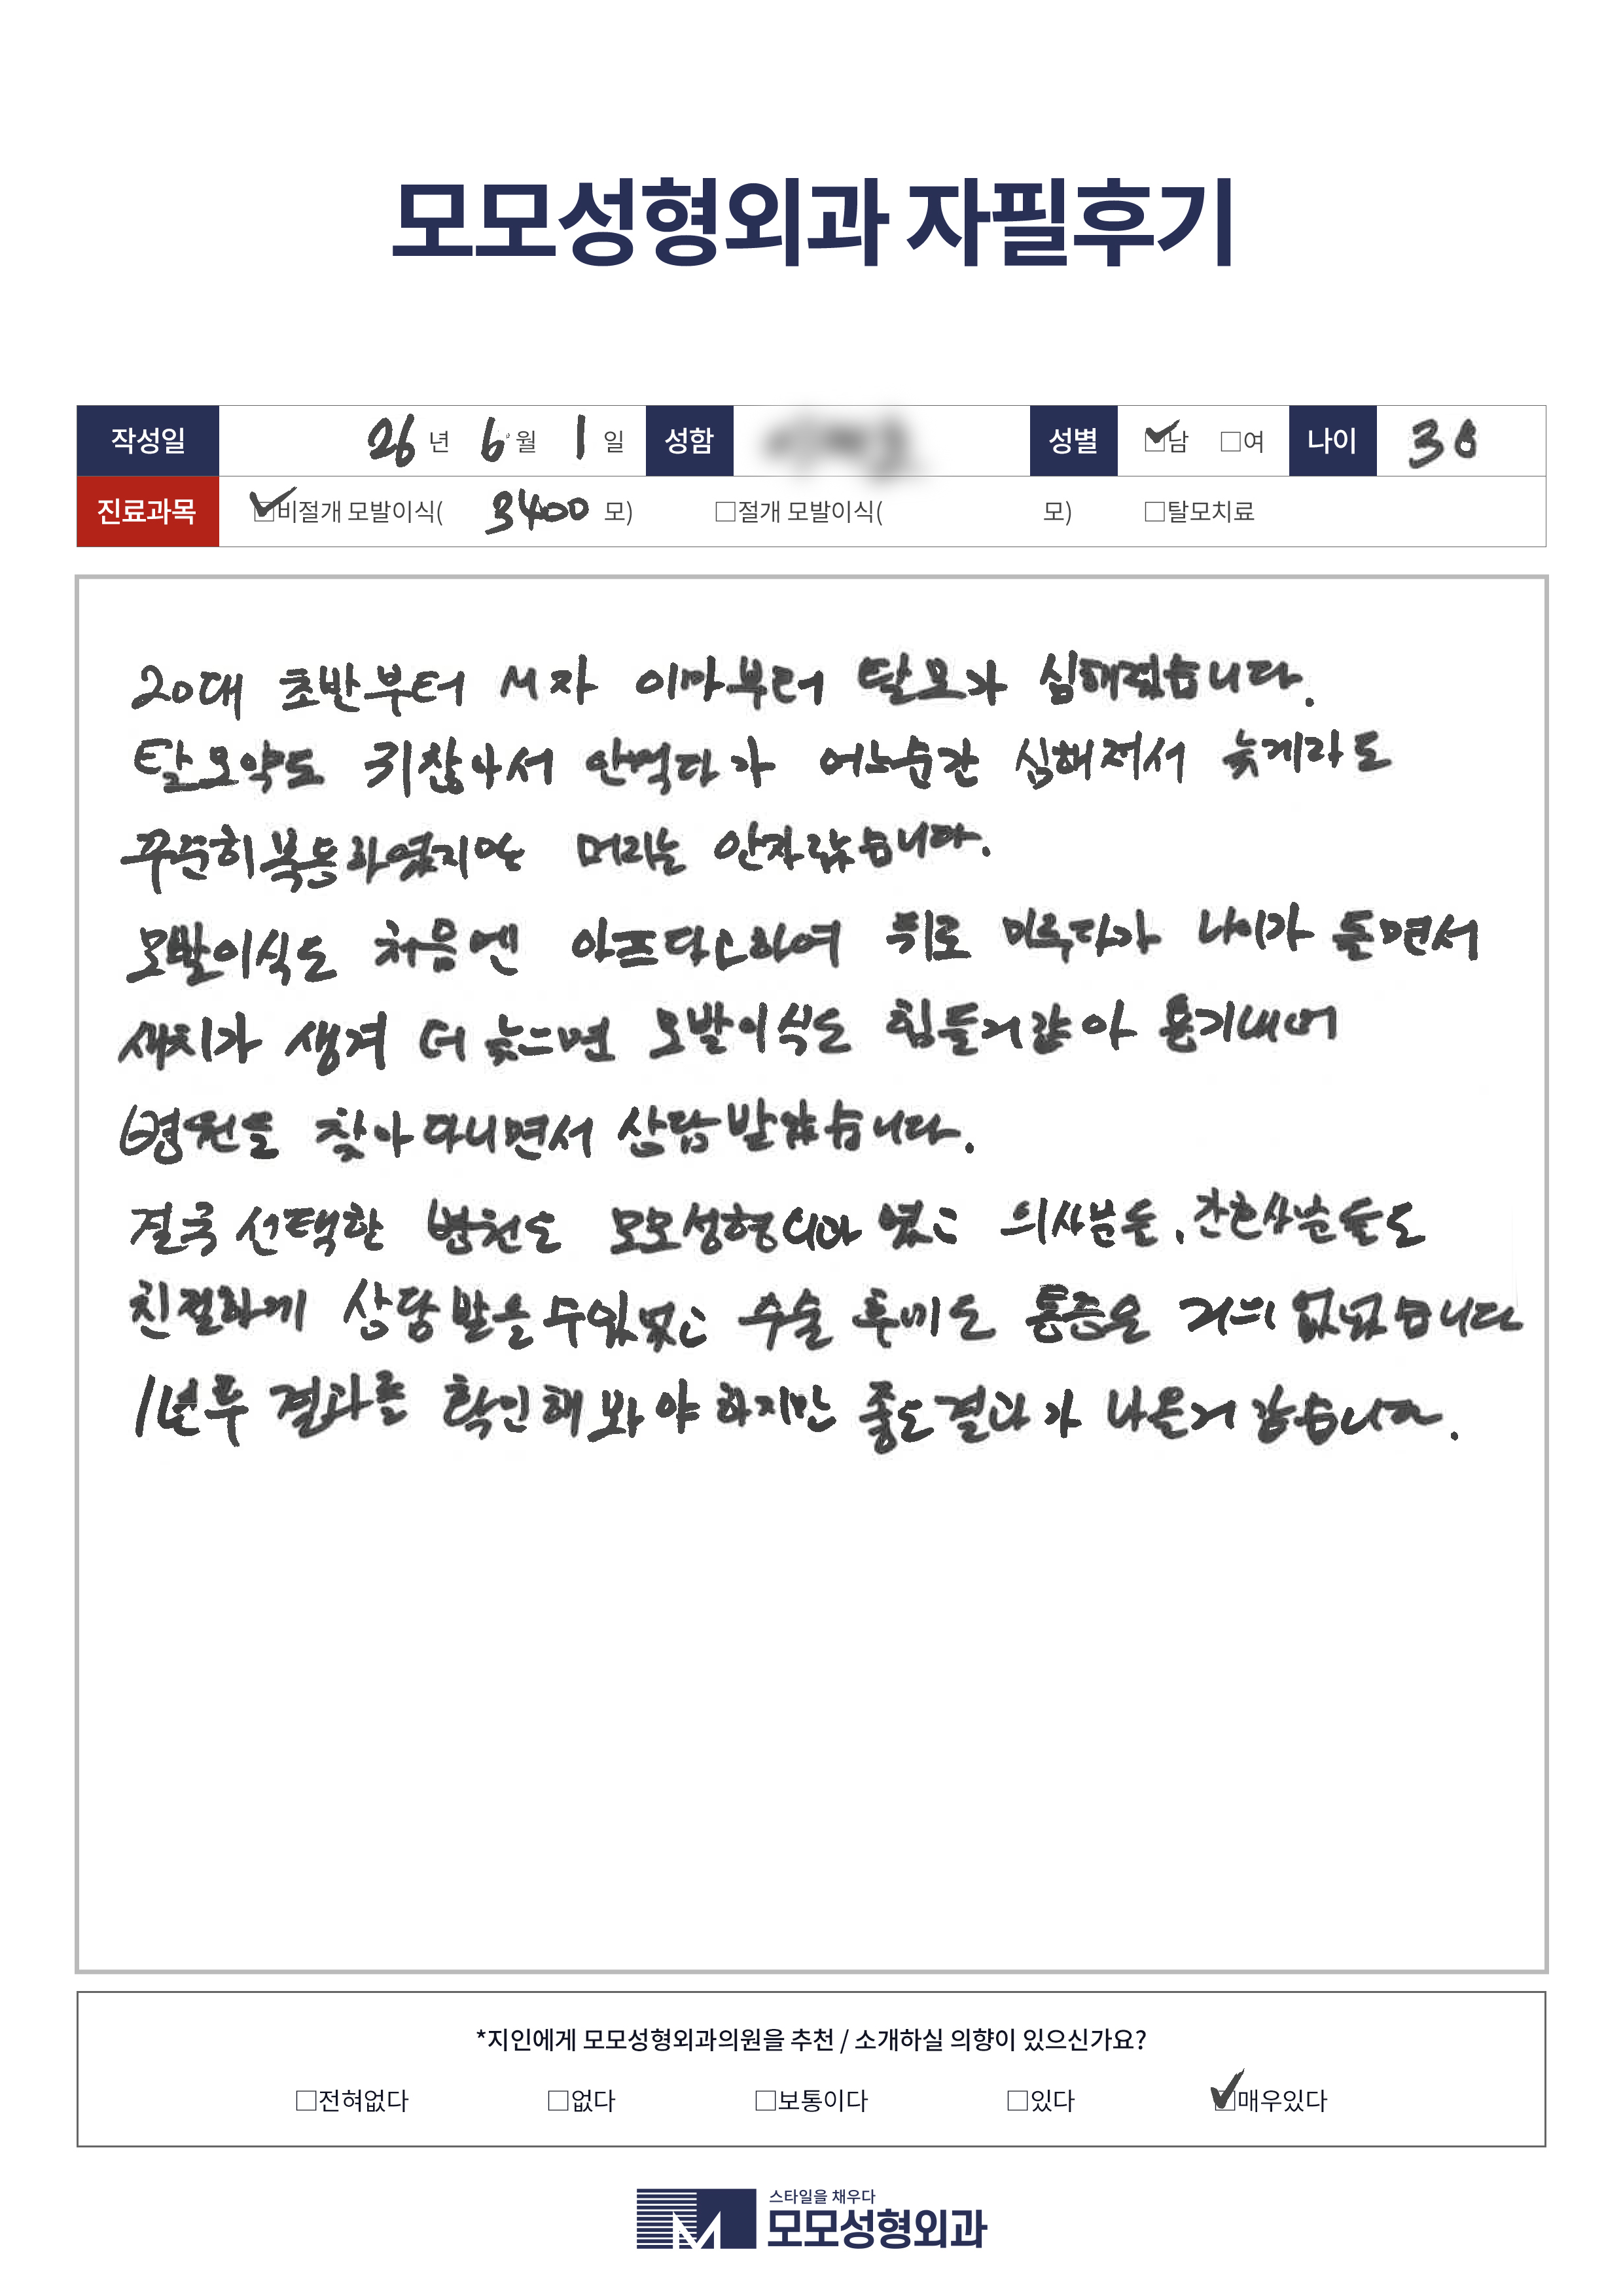 모모성형외과 자필후기
작성일 26 년 6 월 1 일 성함 성별 ☑남 □여 나이 38
진료과목 ☑비절개 모발이식( 3400 모) □절개 모발이식( 모) □탈모치료
20대 초반부터 M자 이마부터 탈모가 심해졌습니다.
탈모약도 귀찮아서 안먹다가 어느순간 심해져서 늦게라도
꾸준히 복용하였지만 머리는 안자랐습니다.
모발이식도 처음엔 아프다고하여 뒤로 미루다가 나이가 들면서
새치가 생겨 더 늦으면 모발이식도 힘들거같아 용기내어
병원을 찾아다니면서 상담받았습니다.
결국 선택한 병원도 모모성형외과 였고 의사분들, 간호사분들도
친절하게 상담받을수있었고 수술 후에도 통증은 거의 없었습니다
1년후 결과를 확인해봐야 하지만 좋은결과가 나올거 같습니다.
*지인에게 모모성형외과의원을 추천 / 소개하실 의향이 있으신가요?
□전혀없다 □없다 □보통이다 □있다 ☑매우있다
스타일을 채우다
모모성형외과